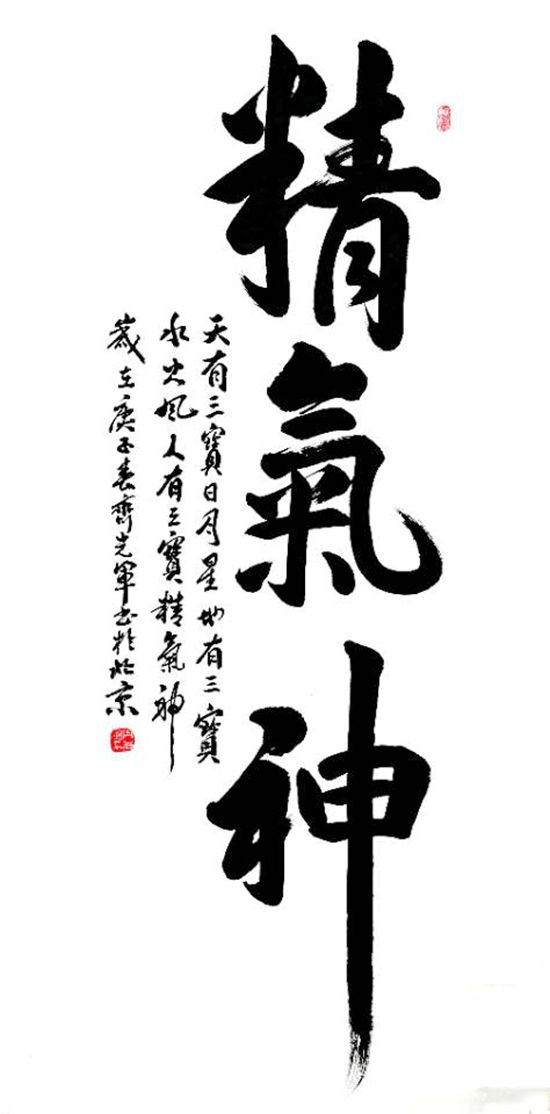 精氣神
天有三寶日月星地有三寶
水火風人有三寶精氣神
歲在庚子春齊光軍書於北京